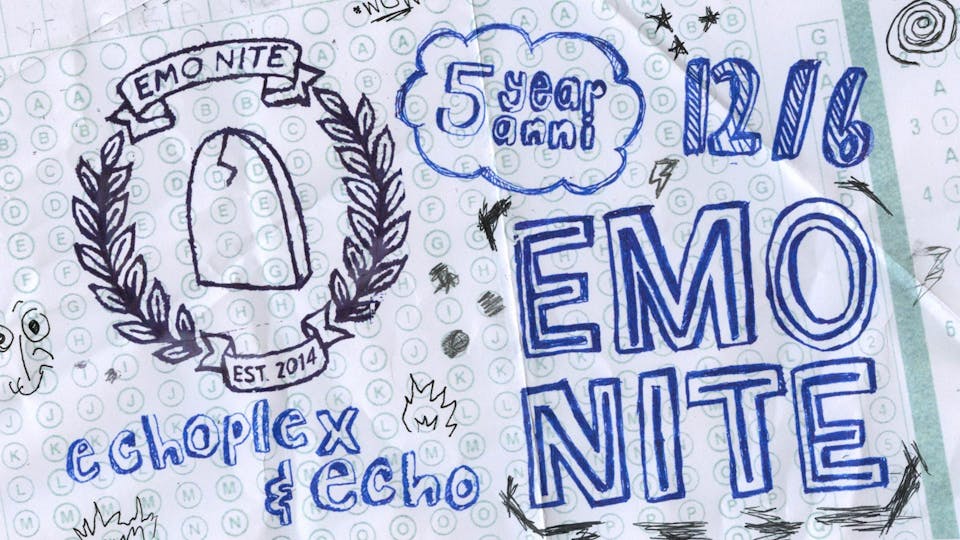 *WOW*
EMO NITE
EST. 2014
5 year
anni
12/6
EMO
NITE
echoplex
& echo